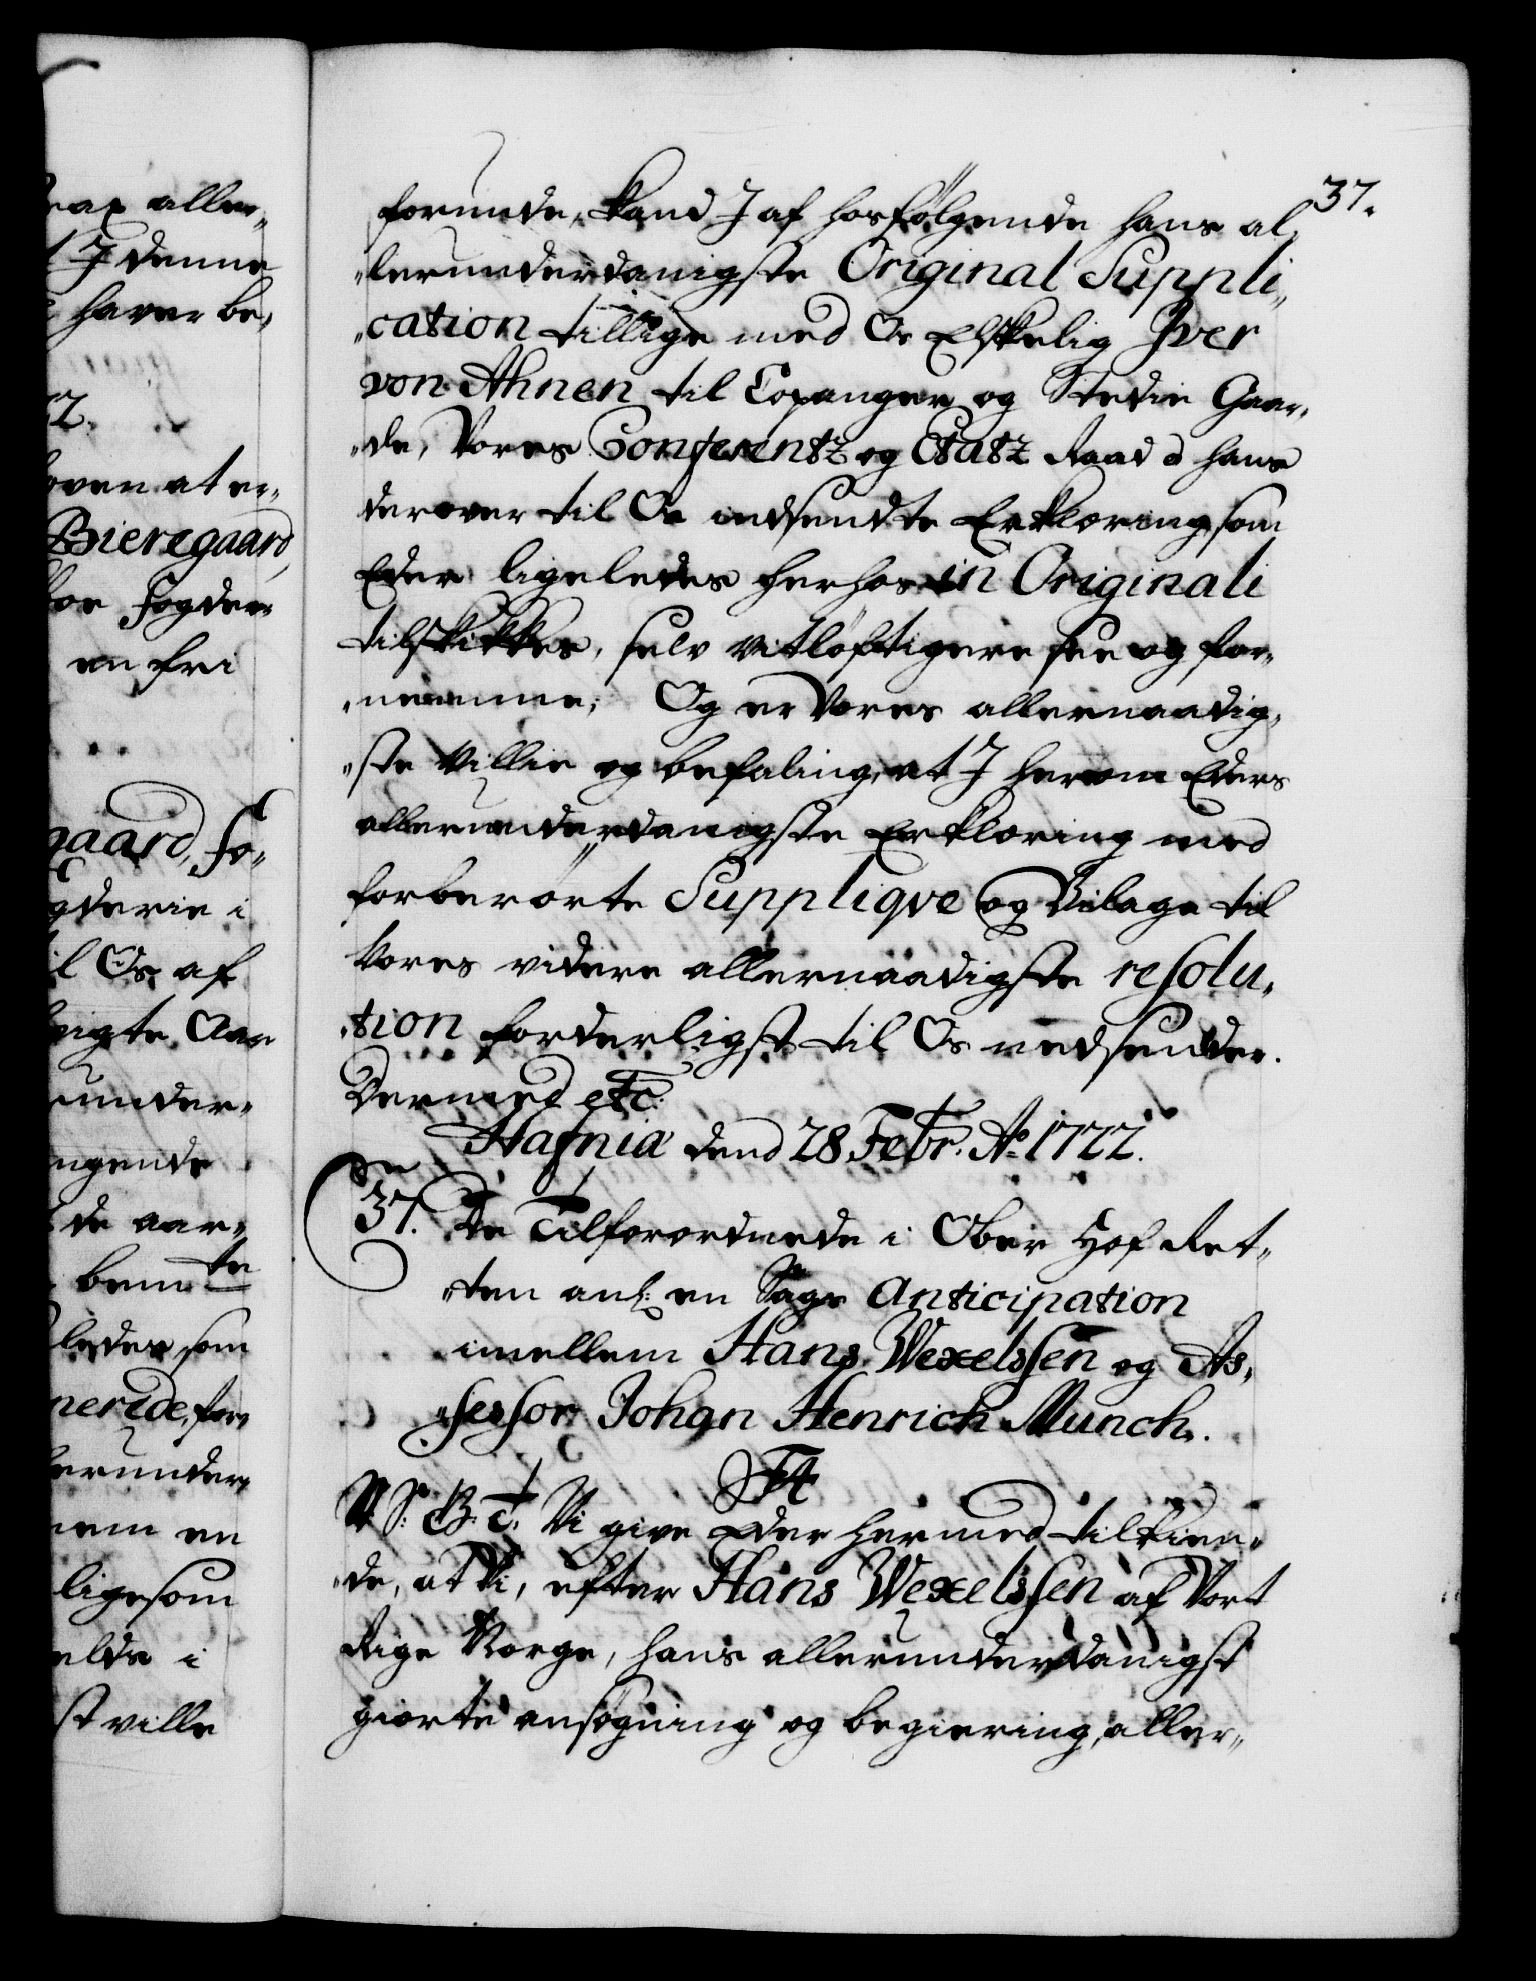 eax aller„
t I denne
haver be„
72.
oven at er„
Bieregaard,
for Fogder„
en fri
gaard, Fo„
gderie i
il Os af
vigte Aar
under„
ngende
de aar„
bemte
ledes som
neride, for„
erunder„
nem en
ligesom
elde i
st ville
37.
forunde, Kand I af hosfølgende hans al„
„lerunderdanigste Original Suppli„
„cation tillige med Os Elskelig Iver
von Ahnen til Copanger og Stedie Gaar„
„de, Vores Conferentz og Etatz Raad d hans
derover til Os indsendte Erklæring, som
Eder ligeledes herhos in Originali
tilskikkes, selv vitløftigere see og for„
„nemme; Og er Vores allernaadig„
„ste Villie og befaling, at I herom Eders
allerunderdanigste Erklæring med
forberørte Suppliqve og Bilage til
Vores videre allernaadigste resolu„
„tion forderligst til Os nedsender.
Dermed etc:
Hafniæ dend 28 Febr. Ao 1722.
37. De Tilforordnede i Ober Hof Ret„
„ten anl: en Sags Anticipation
imellem Hans Wexelssen og As„
„sessor Johan Henrich Munch.
F4
V. S: G. T: Vi give Eder hermed tilkien„
„de, at Vi, efter Hans Wexelssen af Vort
Rige Norge, hans allerunderdanigst
giorte ansøgning og begiering, aller„